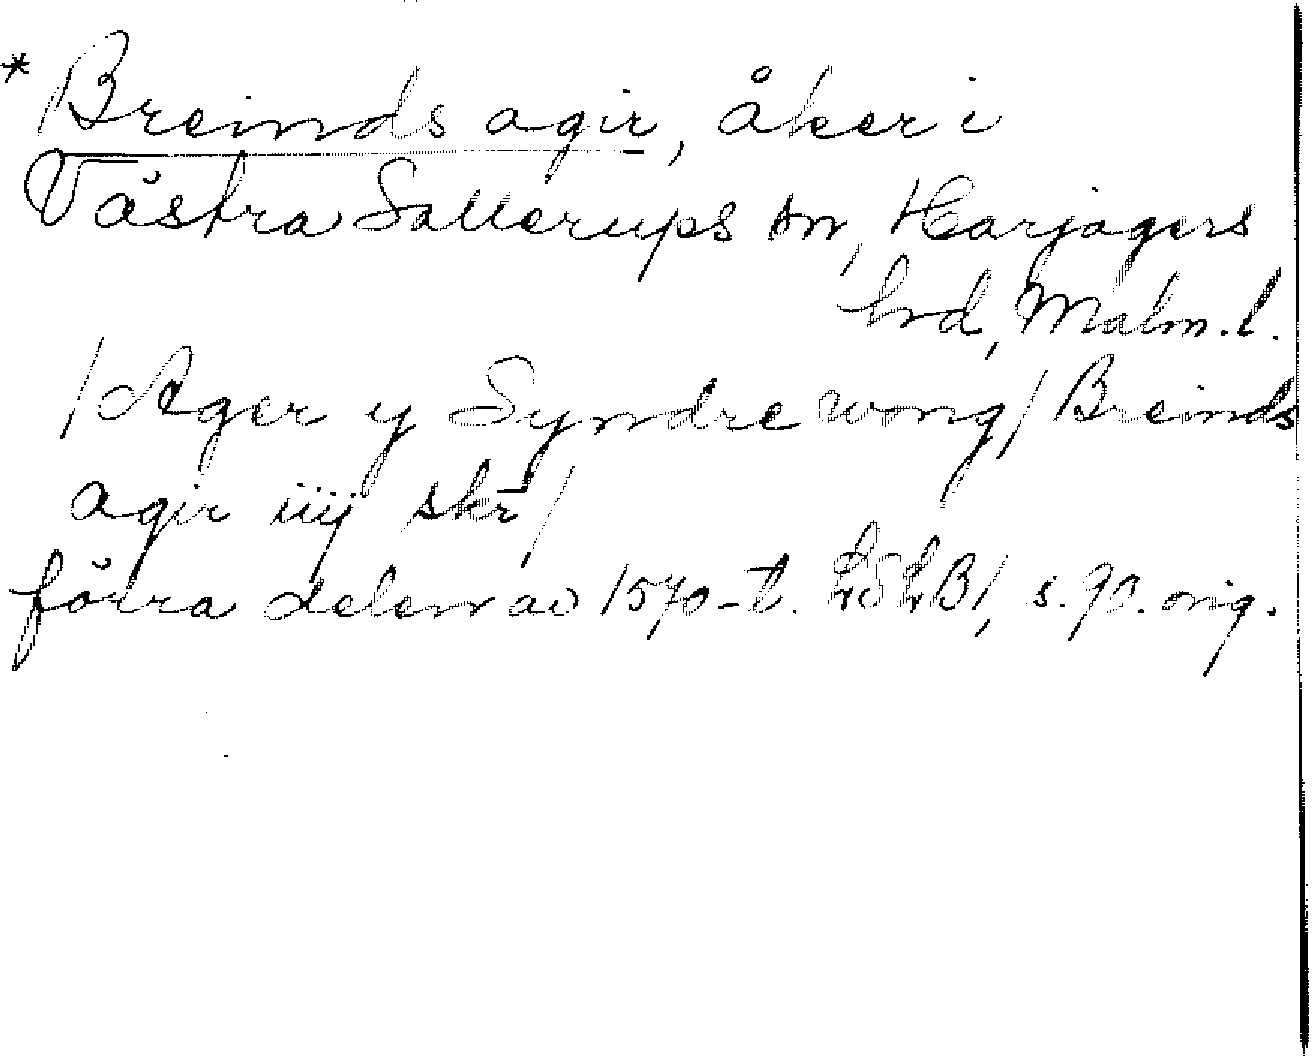 * Breinds agir, åker i
Västra Sallerups sn, Harjagers
hrd, Malm. l.
/Ager y Syndre wong/ Breinds
agir iiij skr/
förra delen av 1570-t. LSLB1, s. 90. orig.